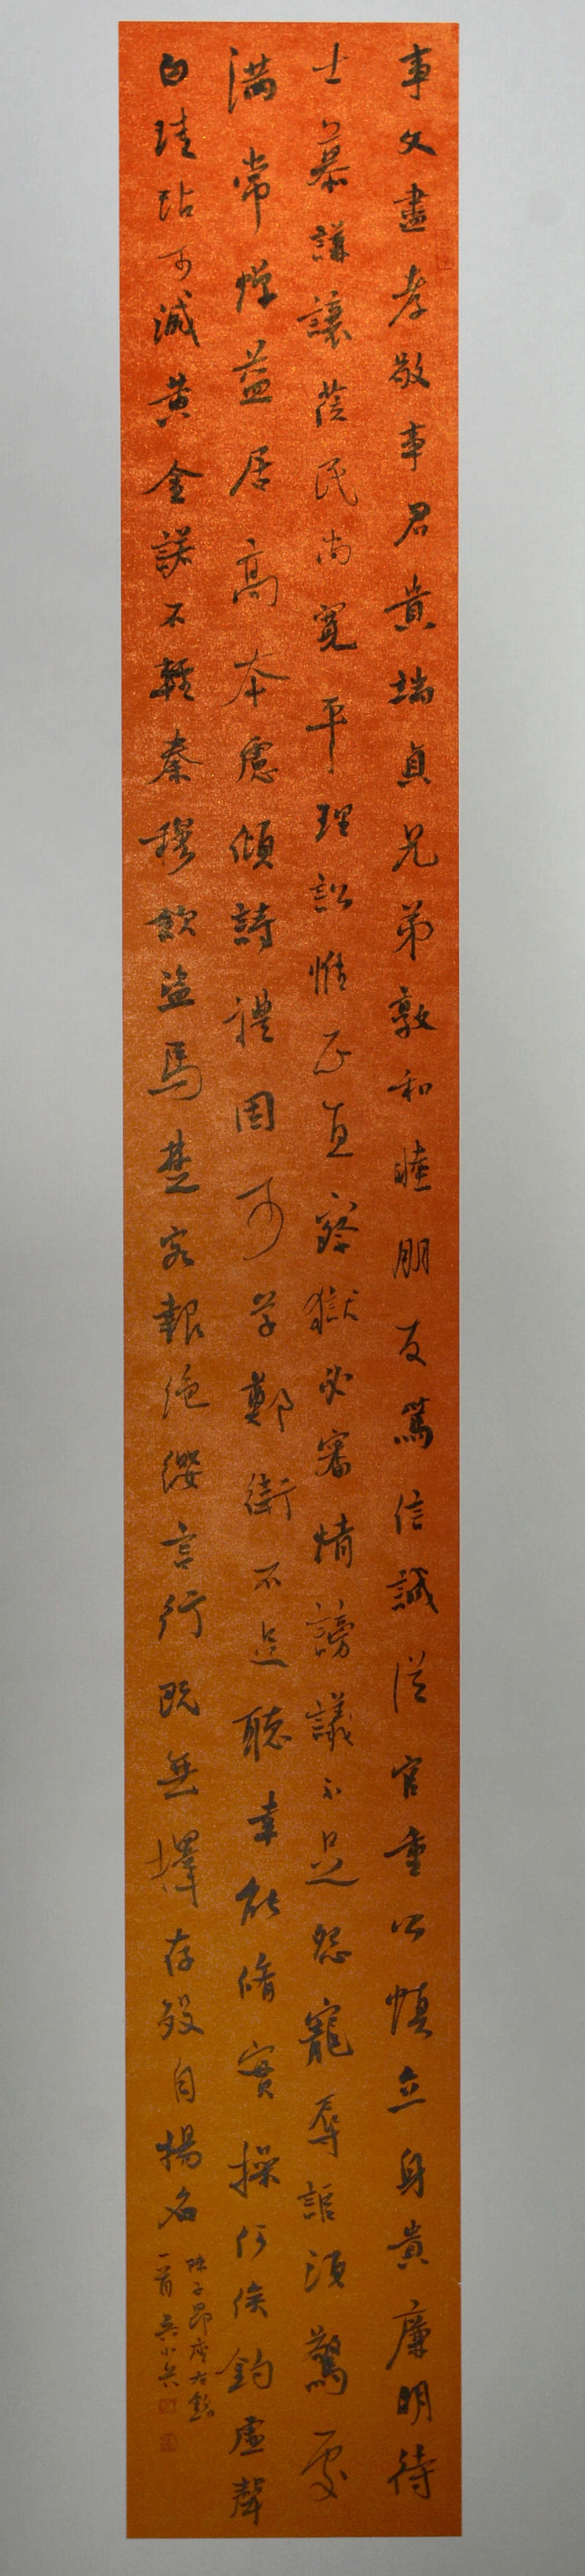 事父盡孝敬事君貴端貞兄弟敦和睦朋友篤信誠從官重公慎立身貴廉明待
士慕謙讓莅民尚寬平理訟惟正直察獄必審情謗議不足怨寵辱詎須驚處
满常憚益居高本慮傾詩禮固可学鄭衛不足聽幸能脩實操何俟釣虛聲
白珪玷可滅黄金諾不輕秦穆飲盜馬楚客報絶纓言行既無擇存殁自揚名
陳子昂座右銘
一首